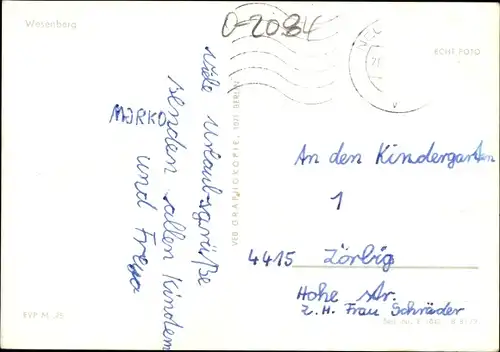 Wesenberg
0-2084
ECHT FOTO
Viele Urlaubsgrüße
senden allen Kindern
und Freya
MIRKO
VEB GRAPHOKOPIE, 1071 BERLIN
An den Kindergarten
1
4415 Zörbig
Hohe Str.
z. H. Frau Schräder